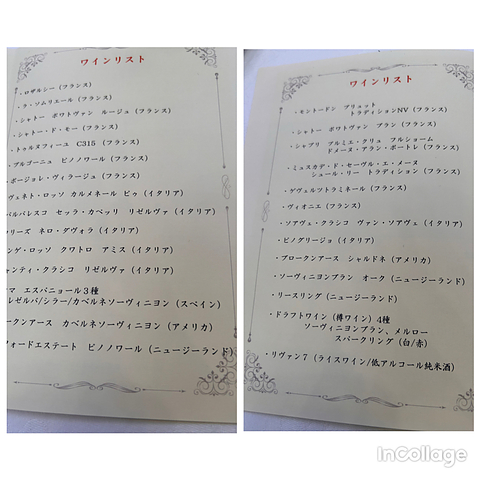 ワインリスト
・ロザルシー (フランス)
・ラ・ソムリエール (フランス)
・シャトー ボワトヴァン ルージュ (フランス)
・シャトー・ド・モー (フランス)
・トゥルヌフィーユ C315 (フランス)
・ブルゴーニュ ピノノワール (フランス)
・ボージョレ・ヴィラージュ (フランス)
ヴェネト・ロッソ カルメネール ピゥ (イタリア)
バルバレスコ セッラ・カベッリ リゼルヴァ (イタリア)
リーズ ネロ・ダヴォラ (イタリア)
ンゲ・ロッソ クワトロ アミス (イタリア)
ャンティ・クラシコ リゼルヴァ (イタリア)
マ エスパニョール3種
レゼルバ/シラー/カベルネソーヴィニヨン (スペイン)
ークンアース カベルネソーヴィニヨン (アメリカ)
フォードエステート ピノノワール (ニュージーランド)
ワインリスト
・モンドードン ブリュット
トラディションNV (フランス)
・シャトー ボワトヴァン ブラン (フランス)
・シャブリ プルミエ・クリュ フルショーム
ドメーヌ・アラン・ポートレ (フランス)
・ミュスカデ・ド・セーヴル・エ・メーヌ
シュール・リー トラディション (フランス)
・ゲヴェルツトラミネール (フランス)
・ヴィオニエ (フランス)
・ソアヴェ・クラシコ ヴァン・ソアヴェ (イタリア)
・ピノグリージョ (イタリア)
・ブロークンアース シャルドネ (アメリカ)
・ソーヴィニヨンブラン オーク (ニュージーランド)
・リースリング (ニュージーランド)
・ドラフトワイン (樽ワイン) 4種
ソーヴィニヨンブラン、メルロー
スパークリング (白/赤)
・リヴァン7 (ライスワイン/低アルコール純米酒)
InCollage